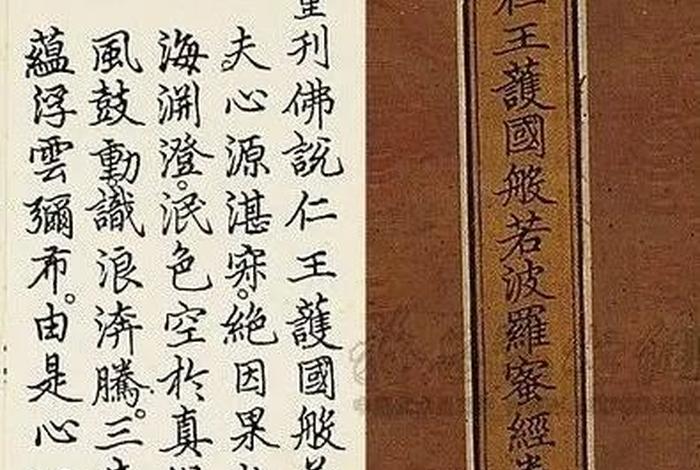 仁王護國般若波羅蜜經
刋佛說仁王護國般
夫心源湛寂。絕因果
海渊澄。泯色空於真
風鼓動識浪渀騰。三
蘊浮雲彌布。由是心